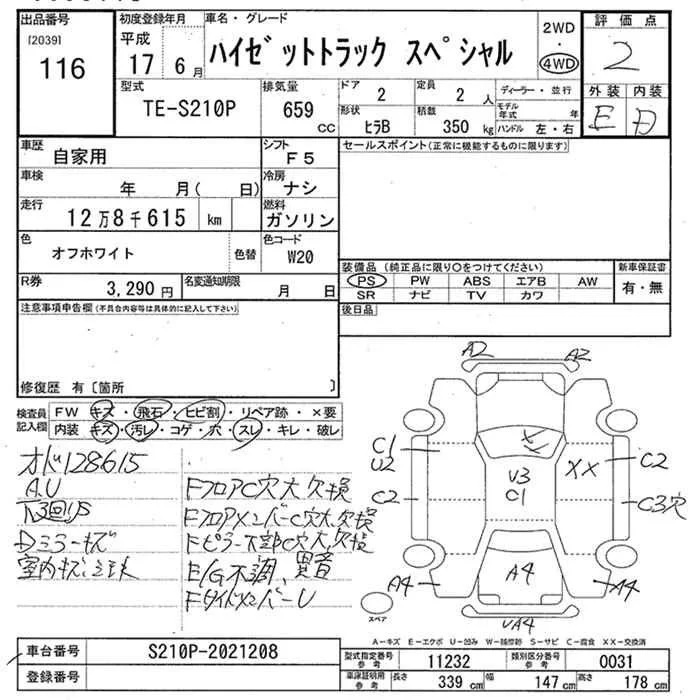 出品番号
[2039]
116
初度登録年月
平成
17年6月
車名・グレード
ハイゼットトラック スペシャル
2WD
・
4WD
評価点
2
外装 内装
E D
型式
TE-S210P
排気量
659
cc
ドア 2
定員 2 人
形状 ヒラB
積載 350 kg
ディーラー・並行
モデル年式 年
ハンドル 左・右
車歴 自家用
シフト F5
車検 年 月( 日)
冷房 ナシ
走行 12万8千615 km
燃料 ガソリン
色 オフホワイト 色替
色コード W20
R券 3,290円
名変通知期限 月 日
セールスポイント(正常に機能するものに限ります)
装備品(純正品に限り○をつけてください)
PS PW ABS エアB AW
SR ナビ TV カワ
新車保証書
有・無
後日品
注意事項申告欄(不具合内容等は具体的に記入して下さい)
修復歴 有〔箇所 〕
検査員記入欄
FW キズ・飛石・ヒビ割・リペア跡・×要
内装 キズ・汚レ・コゲ・穴・スレ・キレ・破レ
オド128615
A.U
下3回リS
Dミラーキズ
FフロアC穴大欠損
FフロアメンバーC穴大欠損
Fピラー下部C穴大欠損
E/G不調、異音
FサイドメンバーU
A2 A2
C1
U2
C2
V3
C1
XX
C2
C3穴
A4
A4
A4
UA4
スペア
A-キズ E-エクボ U-凹み W-補修跡 S-サビ C-腐食 XX-交換済
車台番号 S210P-2021208
登録番号
型式指定番号 参考 11232
類別区分番号 参考 0031
車庫証明用 参考 長さ 339 cm 幅 147 cm 高さ 178 cm